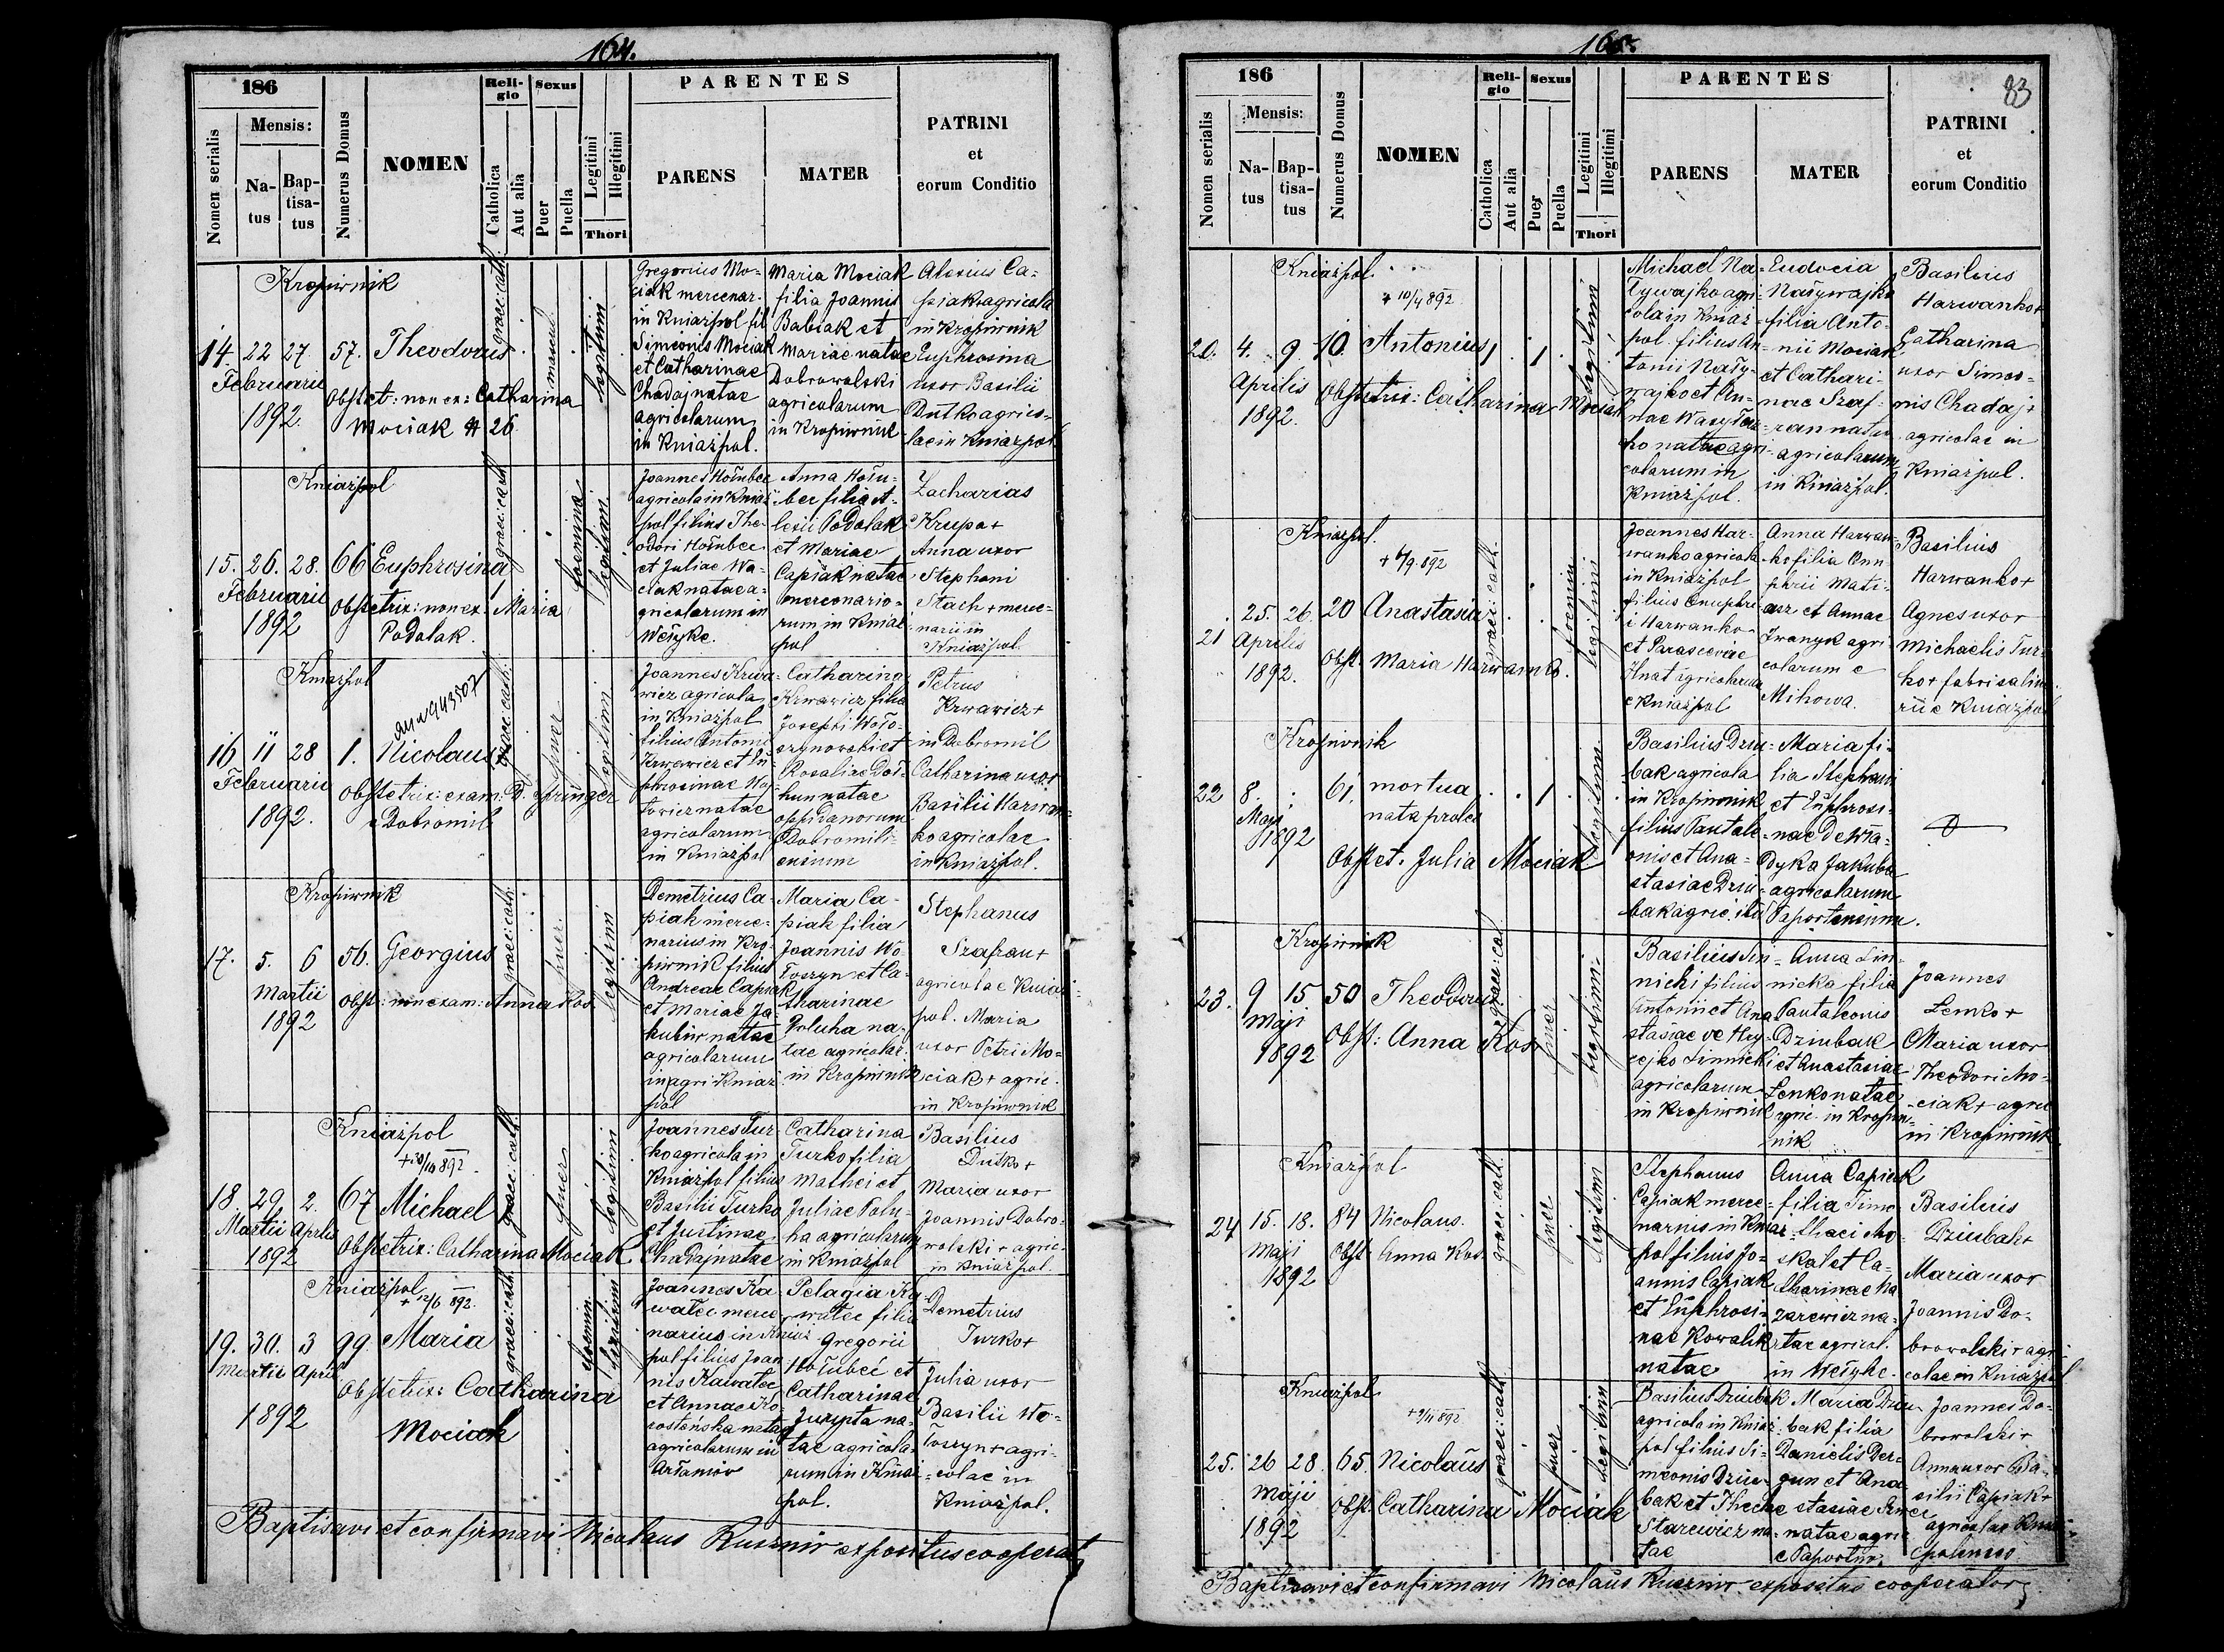 164.
186
Mensis:
Nomen serialis
Na-
tus
Bap-
tisa-
tus
Numerus Domus
NOMEN
Reli-
gio
Catholica
Aut alia
Sexus
Puer
Puella
Legitimi
Illegitimi
Thori
PARENTES
PARENS
MATER
PATRINI
et
eorum Conditio
Kropiwnik
14 22 27. 57. Theodorus
Februarii
1892.
Obstet: non ex: Catharina
Mociak # 26
graec: cath.
mascul.
legitimi
Gregorius Mo-
ciak mercenar.
in Kniazpol fil
Simeonis Mociak
et Catharinae
Chadaj natae
agricolarum
in Kniażpol.
Maria Mociak
filia Joannis
Babiak et
Mariae natae
Dobrowolski
agricolarum
in Kropiwnik
Alexius Ca-
piak agricola
in Kropiwnik
Euphrosina
uxor Basilii
Dutko agrico-
lae in Kniazpol
Kniażpol
15. 26. 28. 66 Euphrosina
Februarii
1892
Obstetrix: non ex. Maria
Podolak.
graec: cath
foemina
legitimi
Joannes Hołubec
agricola in Kniaż
pol filius The-
odori Hołubec
et Juliae Wa-
ciak natae a-
gricolarum in
Wełyke.
Anna Hołu-
bec filia A-
lexii Podolak
et Mariae
Capiak natae
mercenario-
rum in Kniaż
pol
Zacharias
Krupa +
Anna uxor
Stephani
Stach + merce-
narii in
Kniażpol.
Kniażpol
16 11 28 1. Nicolaus
Februarii
1892.
Obstetrix: exam: D. Springer
e Dobromil
graec: cath:
puer
legitimi
Joannes Krwa-
wicz agricola
in Kniażpol
filius Antonii
Krwawicz et Eu
phrosinae Woj
towicz natae
agricolarum
in Kniażpol
Catharina
Krwawicz filia
Josephi Woło-
szynowski et
Rosaliae Doł-
hun natae
oppidanorum
Dobromili-
ensium
Petrus
Krwawicz +
in Dobromil
Catharina uxor
Basilii Harwan-
ko agricolae
in Kniażpol.
Kropiwnik
17. 5. 6 56. Georgius
Martii
1892
Obst: non exam: Anna Kos.
graec: cath:
puer.
legitimi
Demetrius Ca-
piak merce-
narius in Kro-
piwnik filius
Andreae Capiak
et Mariae Ja-
kubiw natae
agricolarum
in agri Kniaż
pol
Maria Ca-
piak filia
Joannis Wo
łoszyn et Ca-
tharinae
Poluha na-
tae agricolar.
in Kropiwnik
Stephanus
Szafran +
agricolae Kniaż
pol. Maria
uxor Petri Mo-
ciak + agric.
in Kropiwnik
Kniażpol
+ 30/10 892.
18. 29. 2. 67 Michael
Martii Aprilis
1892
Obstetrix: Catharina Mociak
graec: cath:
puer
legitimi
Joannes Tur-
ko agricola in
Kniażpol filius
Basilii Turko
et Justinae
Chadaj natae
Catharina
Turko filia
Mathei et
Juliae Polu-
ha agricolarum
in Kniażpol
Basilius
Dutko +
Maria uxor
Joannis Dobro-
wolski + agric.
in Kniażpol.
Kniażpol
+ 12/6 892.
19. 30. 3 99. Maria
Martii April
1892
Obstetrix: Catharina
Mociak
graec: cath.
foemin.
legitimi
Joannes Ka
watec merce
narius in Kniaż
pol filius Joan
nis Kawatec
et Annae Ko-
rosteńska natae
agricolarum in
Arłamów
Pelagia Ka
watec filia
Gregorii
Hołubec et
Catharinae
Jurypta na-
tae agricola-
rum in Kniaż
pol.
Demetrius
Turko +
Julia uxor
Basilii Wo-
łoszyn + agri-
colae in
Kniażpol.
Baptisavi et confirmavi Nicolaus Kusznir expositus cooperat
165.
83
186
Mensis:
Nomen serialis
Na-
tus
Bap-
tisa-
tus
Numerus Domus
NOMEN
Reli-
gio
Catholica
Aut alia
Sexus
Puer
Puella
Legitimi
Illegitimi
Thori
PARENTES
PARENS
MATER
PATRINI
et
eorum Conditio
Kniażpol
+ 10/4 892
20. 4. 9 10. Antonius
Aprilis
1892.
Obstetrix: Catharina Mociak
legitimi
Michael Na-
ływajko agri-
cola in Kniaż-
pol filius An-
tonii Nały-
wajko et An-
nae Wasyłcz-
ko natae agri-
colarum in
Kniażpol.
Eudocia
Naływajko
filia Anto-
nii Mociak
et Cathari-
nae Szaf-
ran natae
agricolarum
in Kniażpol.
Basilius
Harwanko +
Catharina
uxor Simeo-
nis Chadaj +
agricolae in
Kniażpol.
Kniażpol.
+ 6/9 892
21 25. 26. 20 Anastasia
Aprilis
1892.
Obst. Maria Harwanko.
graec: cath.
foemin
legitimi
Joannes Har-
wanko agricola
in Kniażpol
filius Onuphri
i Harwanko
et Parasceviae
Hnat agricolarum
e Kniażpol
Anna Harwan-
ko filia Onu-
phrii Mati-
asz et Annae
Iwanyk agri
colarum e
Mihowa.
Basilius
Harwanko +
Agnes uxor
Michaelis Tur-
ko + fabri salina-
rii e Kniażpol
Kropiwnik
22 8. 61. mortua
nata proles
Maji
1892
Obstet. Julia Mociak
legitimi
Basilius Dziu-
bak agricola
in Kropiwnik
filius Pantale-
onis et Ana-
stasiae Dziu-
bak agric. itd
Maria fi-
lia Stephani
et Euphrosi-
nae de Wła-
dyka Jakubów
agricolarum
Paportensium.
Kropiwnik
23. 9 15 50 Theodorus
Maji
1892
Obst: Anna Kos
graec: cat
puer
legitimi
Basilius Lin-
nicki filius
Antonii et Ana
stasiae de Hry-
cejko Linnicki
agricolarum
in Kropiwnik
Anna Lin-
nicka filia
Pantaleonis
Dziubak
et Anastasiae
Lenko natae
agric. in Kropiw-
nik
Joannes
Lenko +
Maria uxor
Theodori Mo-
ciak + agric
in Kropiwnik
Kniażpol
24 15. 18. 84 Nicolaus.
Maji
1892
Obst Anna Kos.
graec: cath.
puer
legitimi
Stephanus
Capiak merce-
narius in Kniaż
pol filius Jo-
annis Capiak
et Euphrosi-
nae Kowalik
natae
Anna Capiak
filia Timo-
thaei Mo-
skal et Ca-
tharinae Na
zarewicz na-
tae agricol.
in Wełyke.
Basilius
Dziubak +
Maria uxor
Joannis Do-
browolski + agri-
colae in Kniażpol
Kniażpol
+ 9/11 892
25. 26 28. 65. Nicolaus
Maji
1892
Obst. Catharina Mociak
graeci: cath.
puer
legitimi
Basilius Dziubak
agricola in Kniaż-
pol filius Si-
meonis Dziu-
bak et Theclae
Starewicz na-
tae
Maria Dziu-
bak filia
Danielis Der-
gun et Ana-
stasiae
natae agric
e Paportno.
Joannes Do-
browolski +
Anna uxor Ba-
silii Capiak +
agricolae Kniaż
polenses
Baptisavi et confirmavi Nicolaus Kusznir expositus cooperator